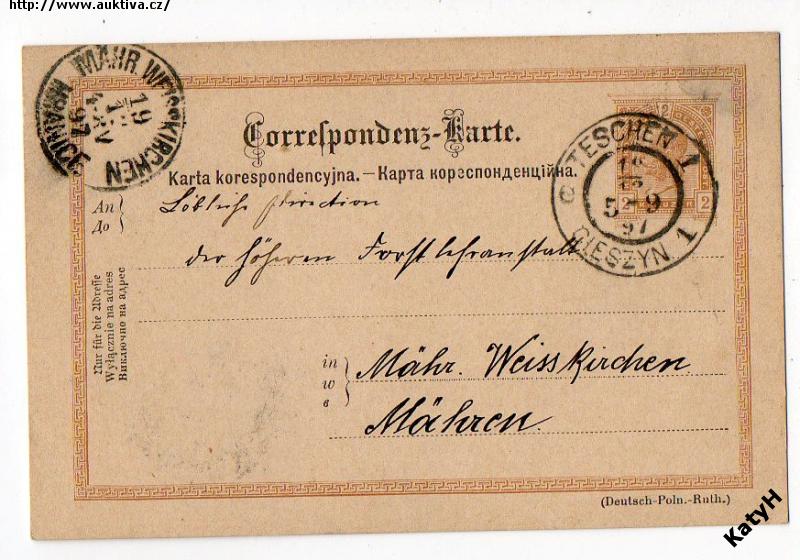 http://www.auktiva.cz/
MÄHR. WEISSKIRCHEN
HRANICE
19
12
97
Correspondenz-Karte.
Karta korespondencyjna. — Карта кореспонденційна.
2
2 2
TESCHEN 1
5-9
97
CIESZYN 1
An
До
Löbliche Direction
der höheren Forstlehranstalt
Nur für die Adresse
Wyłącznie na adres
Виключно на адрес
in
w
в
Mähr. Weisskirchen
Mähren
(Deutsch-Poln.-Ruth.)
KatyH